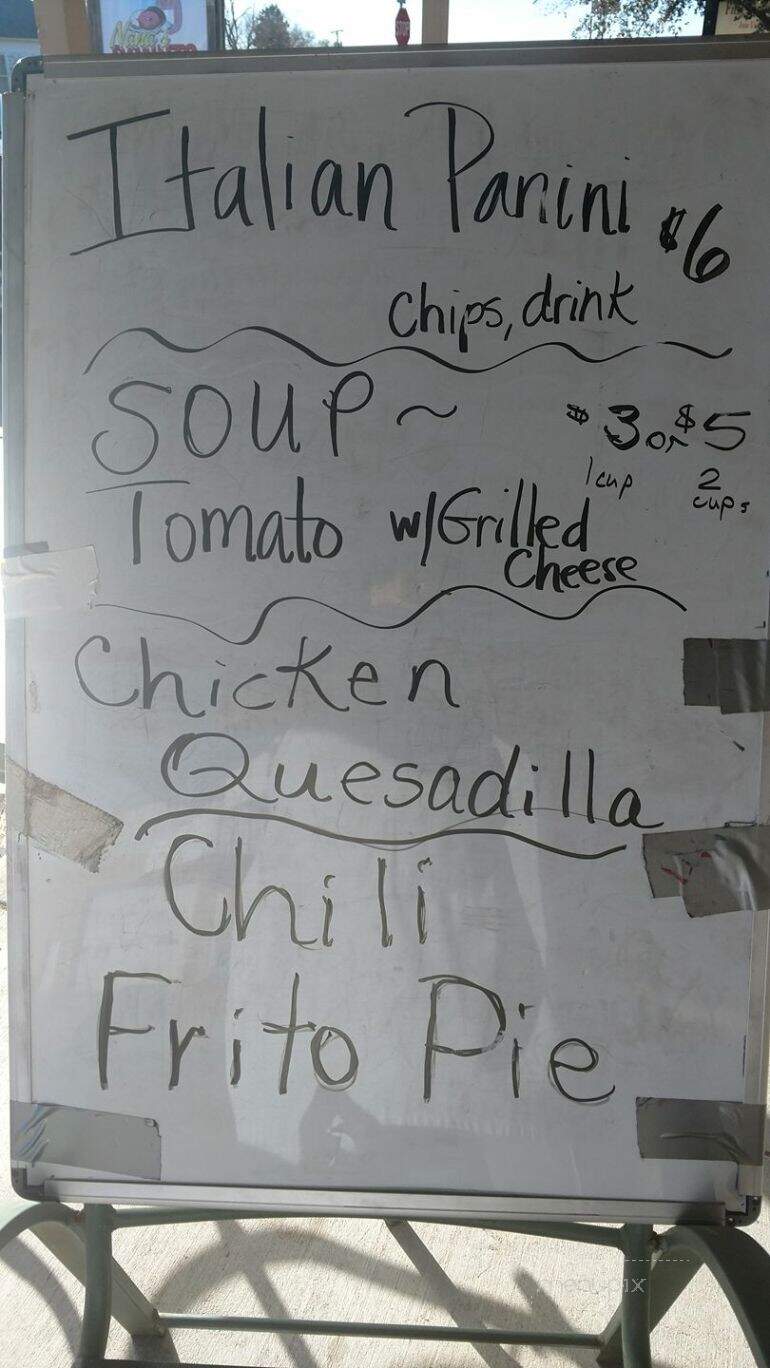 Nana's
Italian Panini $6
chips, drink
SOUP ~ $3 or $5
1 cup 2 cups
Tomato w/Grilled Cheese
Chicken
Quesadilla
Chili
Frito Pie
menupix